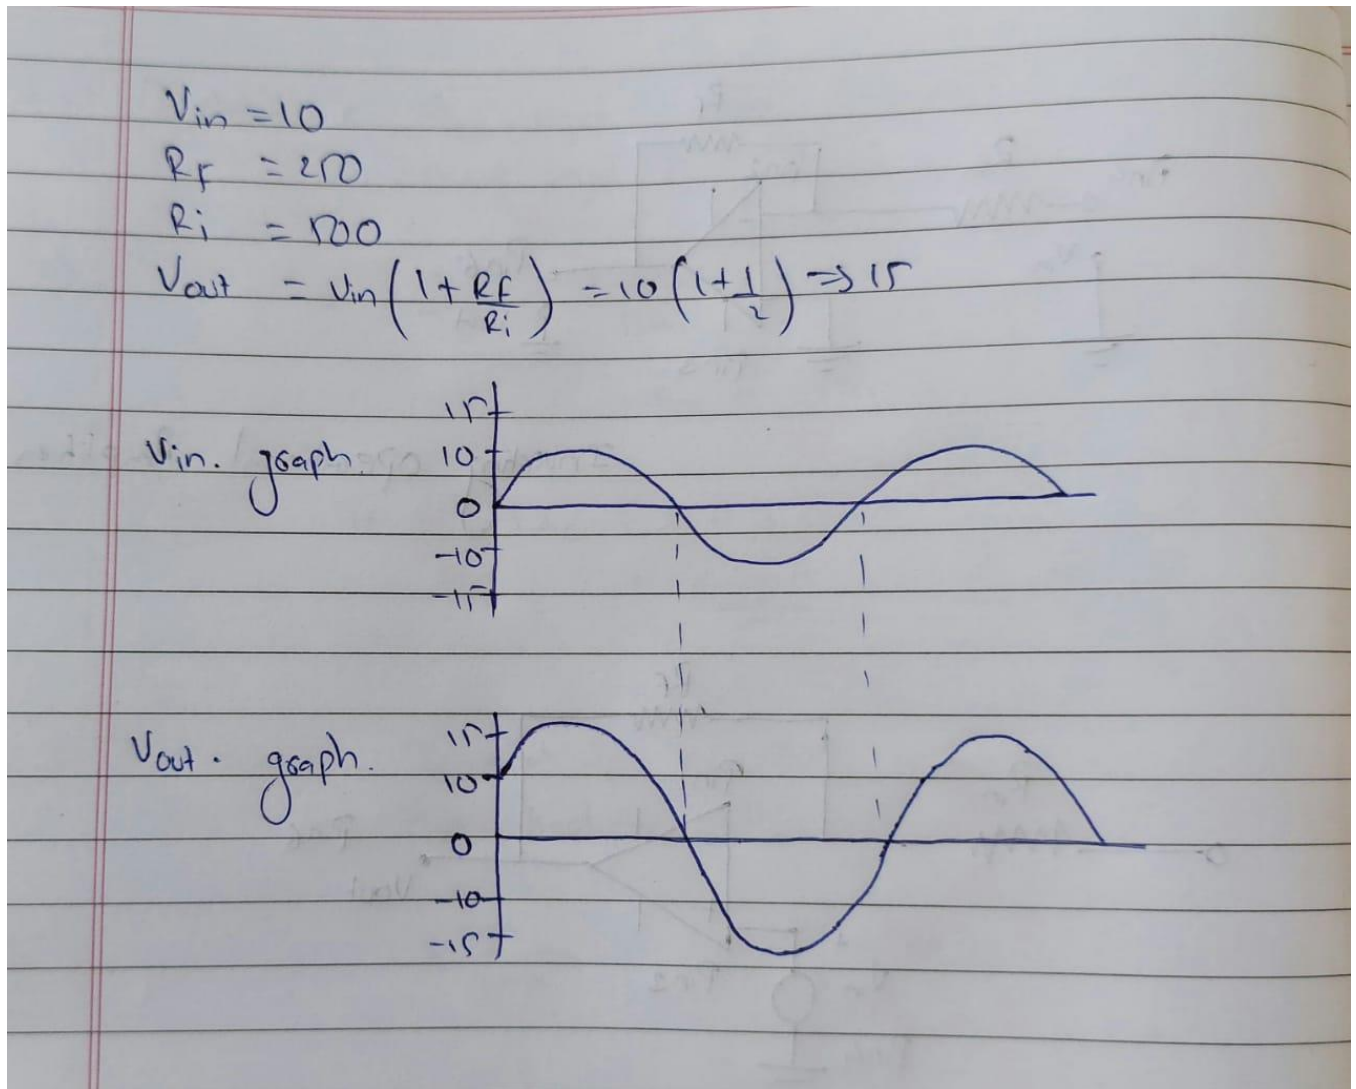 Vin = 10
RF = 250
Ri = 500
Vout = Vin (1 + RF/Ri) = 10 (1 + 1/2) => 15
15
Vin. graph.
10
0
-10
-15
15
Vout. graph.
10
0
-10
-15